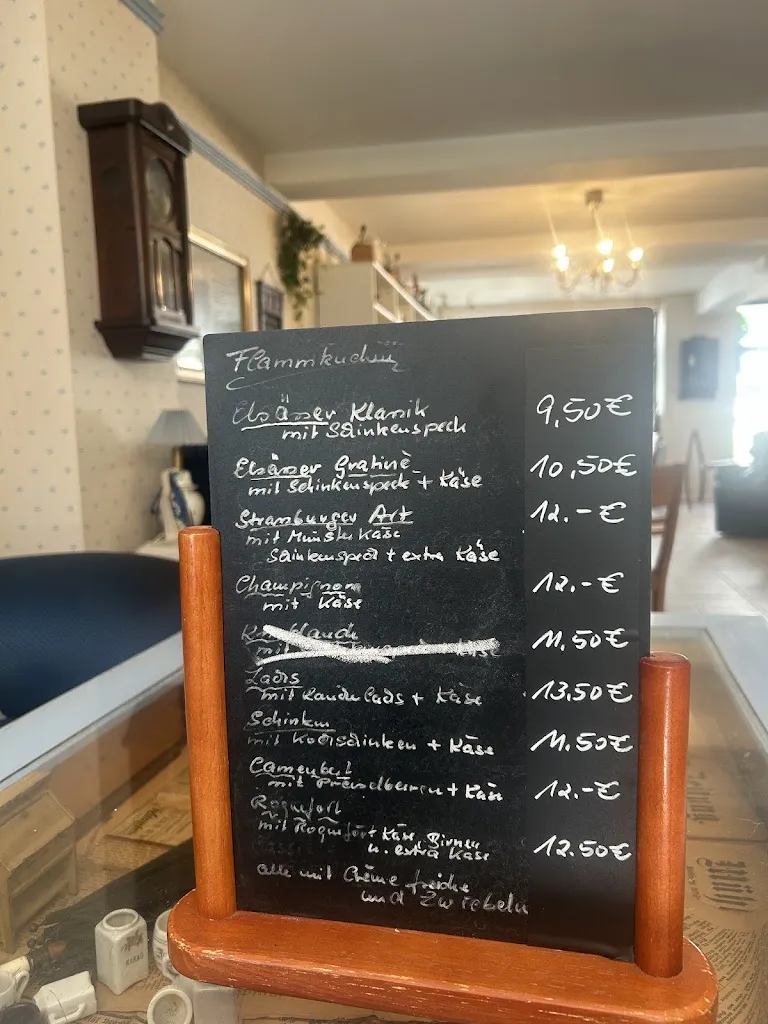 Flammkuchen
Elsässer Klassik 9,50€
mit Schinkenspeck
Elsässer Gratiné 10,50€
mit Schinkenspeck + Käse
Strassburger Art 12.-€
mit Münster Käse
Schinkenspeck + extra Käse
Champignon 12.-€
mit Käse
11.50€
mit Käse
Lachs 13.50€
mit Räucherlachs + Käse
Schinken 11.50€
mit Kochschinken + Käse
Camenbert 12.-€
mit Preiselbeeren + Käse
Roquefort
mit Roquefort Käse, Birnen
u. extra Käse 12.50€
alle mit Crème fraiche
und Zwiebeln